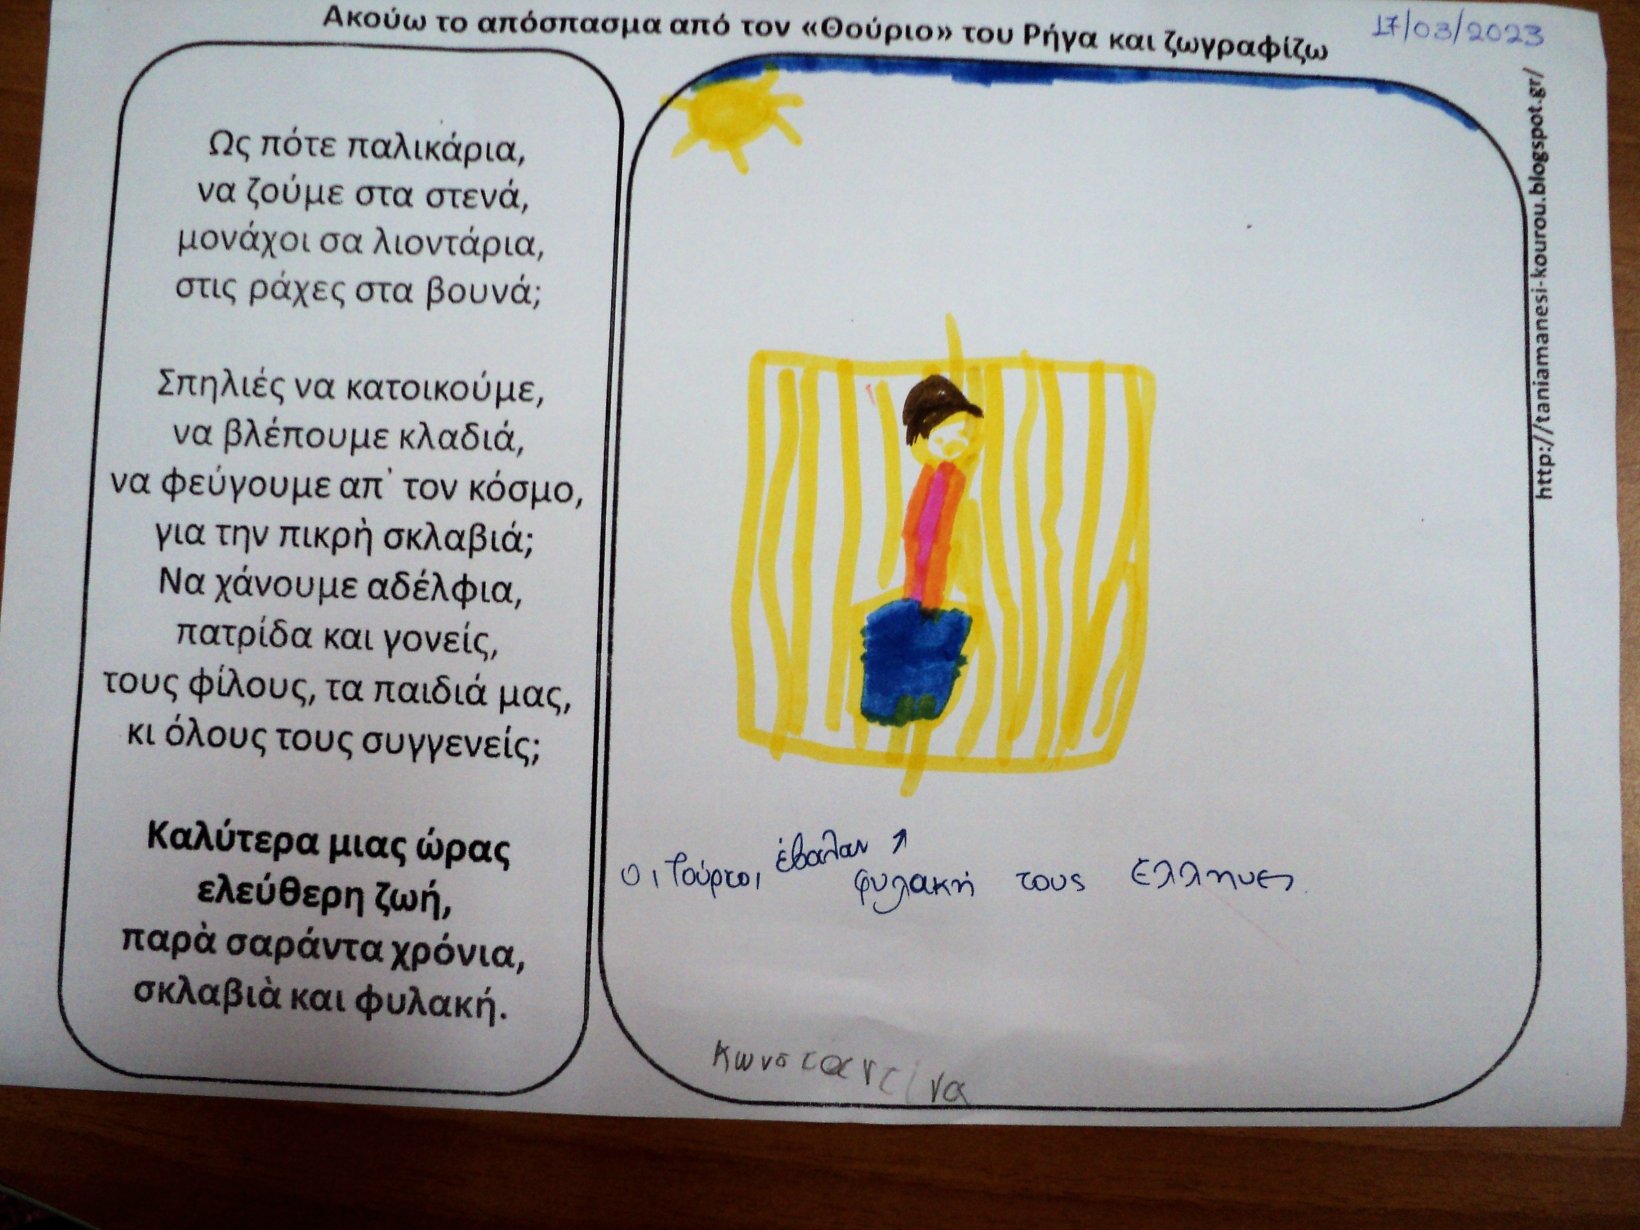 Ακούω το απόσπασμα από τον «Θούριο» του Ρήγα και ζωγραφίζω
17/03/2023
Ως πότε παλικάρια,
να ζούμε στα στενά,
μονάχοι σα λιοντάρια,
στις ράχες στα βουνά;
Σπηλιές να κατοικούμε,
να βλέπουμε κλαδιά,
να φεύγουμε απ᾽ τον κόσμο,
για την πικρὴ σκλαβιά;
Να χάνουμε αδέλφια,
πατρίδα και γονείς,
τους φίλους, τα παιδιά μας,
κι όλους τους συγγενείς;
Καλύτερα μιας ώρας
ελεύθερη ζωή,
παρὰ σαράντα χρόνια,
σκλαβιὰ και φυλακή.
οι Τούρκοι έβαλαν φυλακή τους Έλληνες
Κωνσταντίνα
http://taniamanesi-kourou.blogspot.gr/